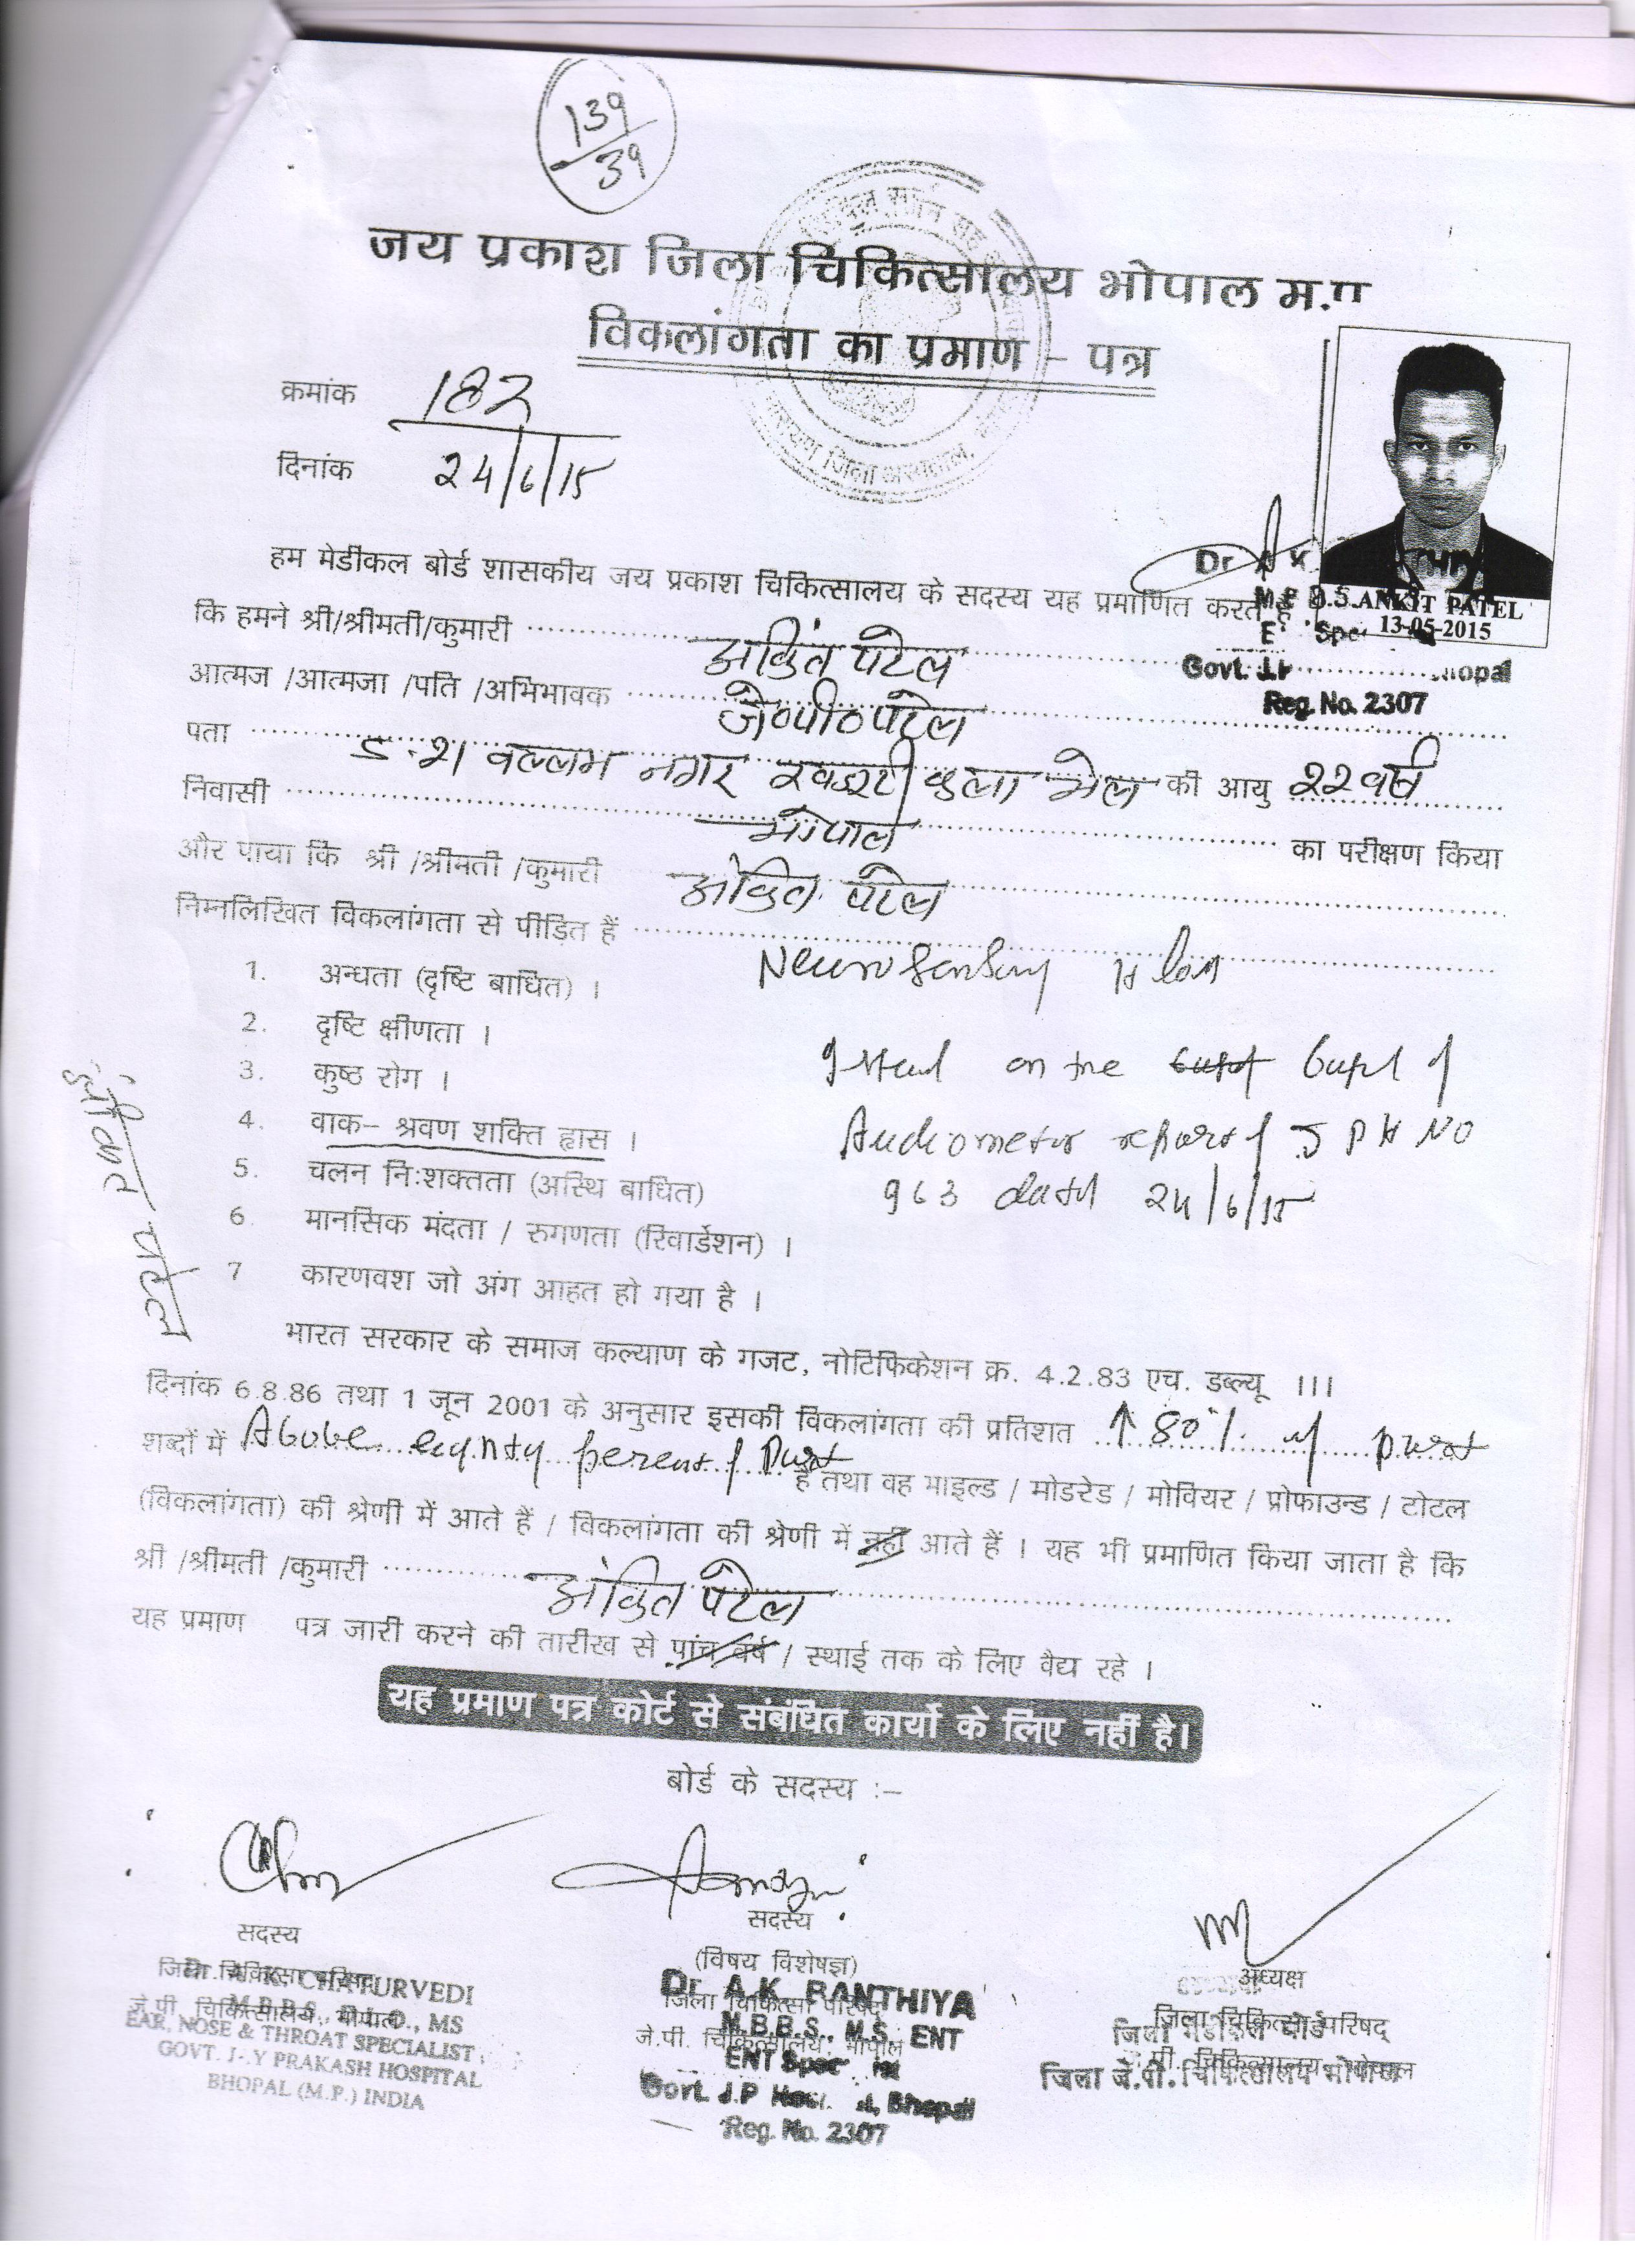 139
39
जय प्रकाश जिला चिकित्सालय भोपाल म.प्र
विकलांगता का प्रमाण – पत्र
क्रमांक 182
दिनांक 24/6/15
हम मेडीकल बोर्ड शासकीय जय प्रकाश चिकित्सालय के सदस्य यह प्रमाणित करते है
ANKIT PATEL
13-05-2015
Govt. J.
Reg. No. 2307
कि हमने श्री/श्रीमती/कुमारी अंकित पटेल
आत्मज /आत्मजा /पति /अभिभावक जे०पी० पटेल
पता वल्लभ नगर की आयु 22 वर्ष
निवासी भोपाल का परीक्षण किया
और पाया कि श्री /श्रीमती /कुमारी अंकित पटेल
निम्नलिखित विकलांगता से पीड़ित हैं
Neuro Sensory H loss
1. अन्धता (दृष्टि बाधित) ।
2. दृष्टि क्षीणता ।
on the
3. कुष्ठ रोग ।
4. वाक– श्रवण शक्ति ह्रास ।
report of JPH NO
5. चलन निःशक्तता (अस्थि बाधित)
963 dated 24/6/15
6. मानसिक मंदता / रुगणता (रिवार्डेशन) ।
7 कारणवश जो अंग आहत हो गया है ।
अंकित पटेल
भारत सरकार के समाज कल्याण के गजट, नोटिफिकेशन क्र. 4.2.83 एच. डब्ल्यू ।।।
दिनांक 6.8.86 तथा 1 जून 2001 के अनुसार इसकी विकलांगता की प्रतिशत ↑ 80%
शब्दों में Above है तथा वह माइल्ड / मोडरेड / मोवियर / प्रोफाउन्ड / टोटल
(विकलांगता) की श्रेणी में आते हैं / विकलांगता की श्रेणी में नहीं आते हैं । यह भी प्रमाणित किया जाता है कि
श्री /श्रीमती /कुमारी अंकित पटेल
यह प्रमाण पत्र जारी करने की तारीख से पांच वर्ष / स्थाई तक के लिए वैद्य रहे ।
यह प्रमाण पत्र कोर्ट से संबंधित कार्यो के लिए नहीं है।
बोर्ड के सदस्य :–
सदस्य
CHATURVEDI
MS
EAR, NOSE & THROAT SPECIALIST
GOVT. PRAKASH HOSPITAL
BHOPAL (M.P.) INDIA
सदस्य
(विषय विशेषज्ञ)
Dr. A.K. RANTHIYA
जिला चिकित्सा परिषद
M.B.B.S., M.S. ENT
जे.पी. चिकित्सालय, भोपाल
ENT
Govt. J.P Bhopal
Reg. No. 2307
अध्यक्ष
जिला चिकित्सा परिषद्
जिला जे.पी. चिकित्सालय भोपाल